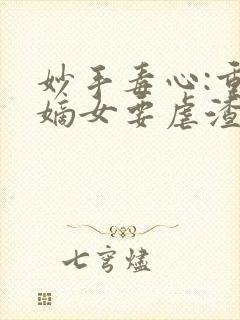 妙手毒心:重
嫡女要虐渣
七穹烬